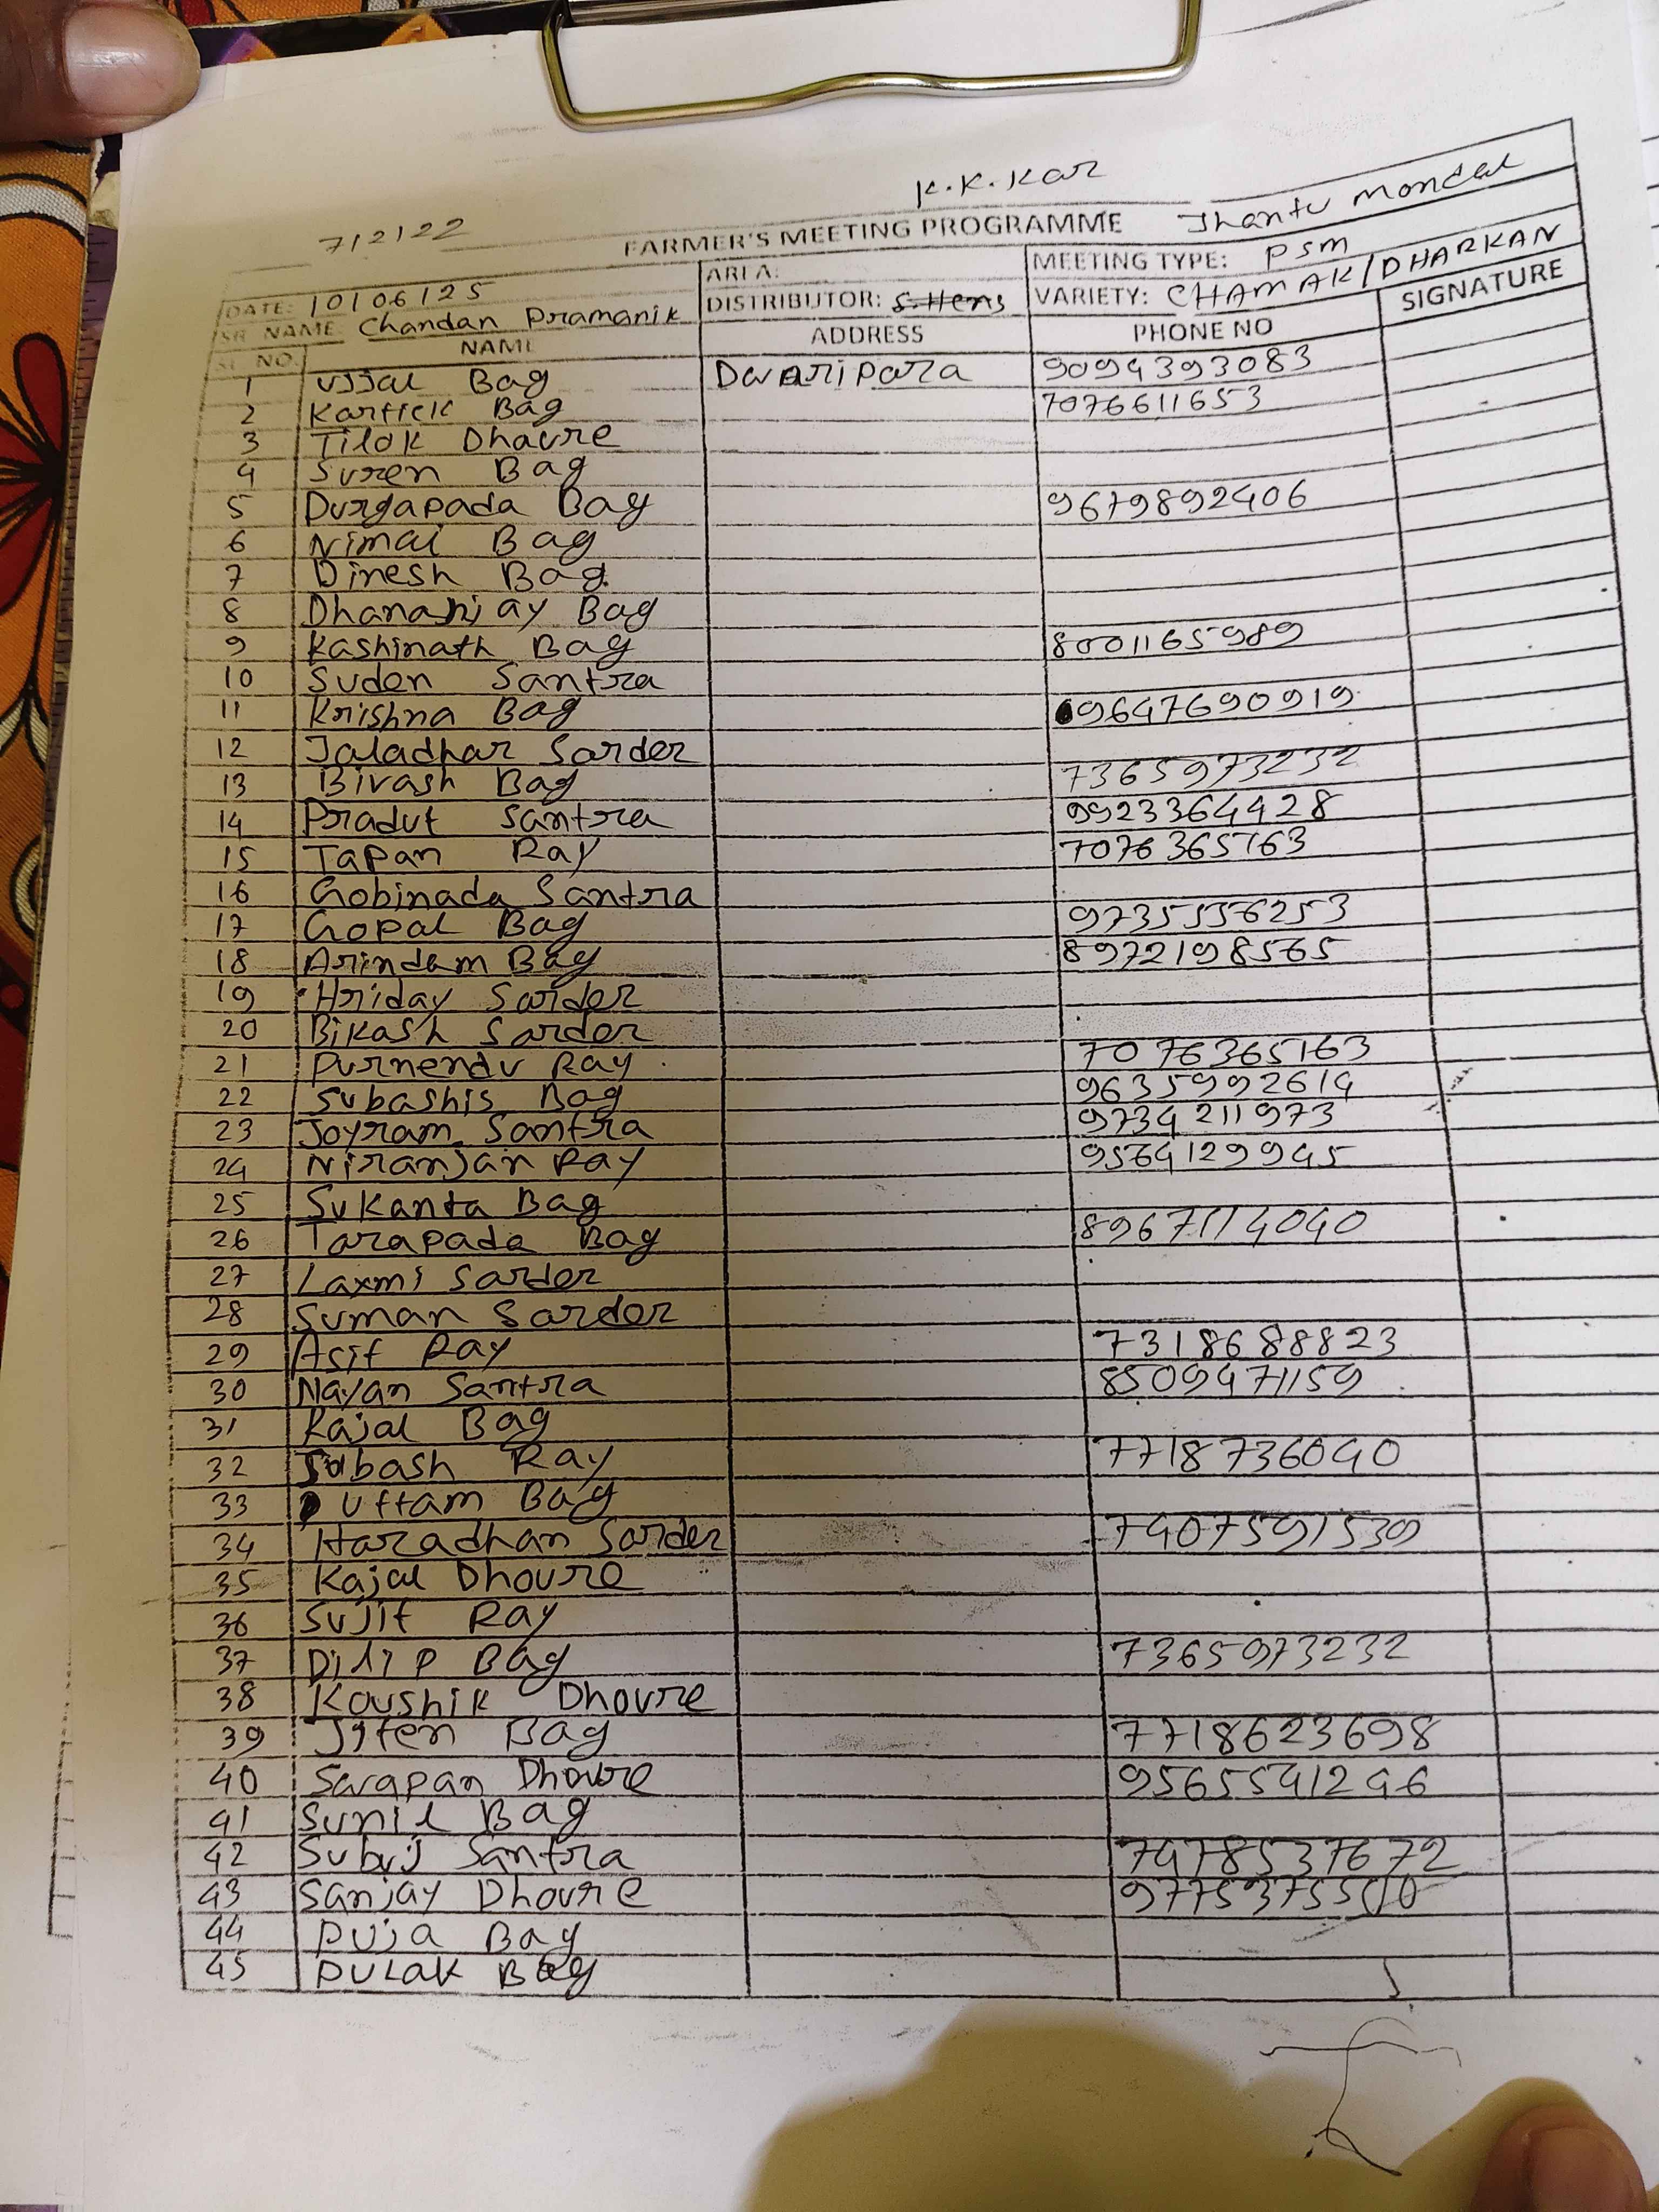 K.K.Kar
712122
FARMER'S MEETING PROGRAMME Jhantu Mondal
DATE: 10/06/25 AREA: MEETING TYPE: PSM
SR. NAME Chandan Pramanik DISTRIBUTOR: S.Hens VARIETY: CHAMAK/DHARKAN
SL. NO. NAME ADDRESS PHONE NO SIGNATURE
1 Ujjal Bag Dwaripara 9094393083
2 Kartick Bag 7076611653
3 Tilok Dhaure
4 Suren Bag
5 Durgapada Bag 9679892406
6 Nimai Bag
7 Dinesh Bag
8 Dhananjay Bag
9 Kashinath Bag 8001165989
10 Suden Santra
11 Krishna Bag 9647690919
12 Jaladhar Sarder
13 Bivash Bag 7365973232
14 Pradut Santra 9923364428
15 Tapan Ray 7076365163
16 Gobinada Santra
17 Gopal Bag 9735556253
18 Arindam Bag 8972198565
19 Hriday Sarder
20 Bikash Sarder
21 Purnendu Ray 7076365163
22 Subashis Bag 9635992614
23 Joyram Santra 9734211973
24 Niranjan Ray 9564129945
25 Sukanta Bag
26 Tarapada Bag 8967114040
27 Laxmi Sarder
28 Suman Sarder
29 Asit Ray 7318688823
30 Nayan Santra 8509471159
31 Kajal Bag
32 Subash Ray 7718736040
33 Uttam Bag
34 Haradhan Sarder 7407591539
35 Kajal Dhoure
36 Sujit Ray
37 Dilip Bag 7365973232
38 Koushik Dhoure
39 Jiten Bag 7718623698
40 Sarapan Dhoure 9565541246
41 Sunil Bag
42 Subuj Santra 7478537672
43 Sanjay Dhoure
44 Puja Bag
45 Pulak Bag